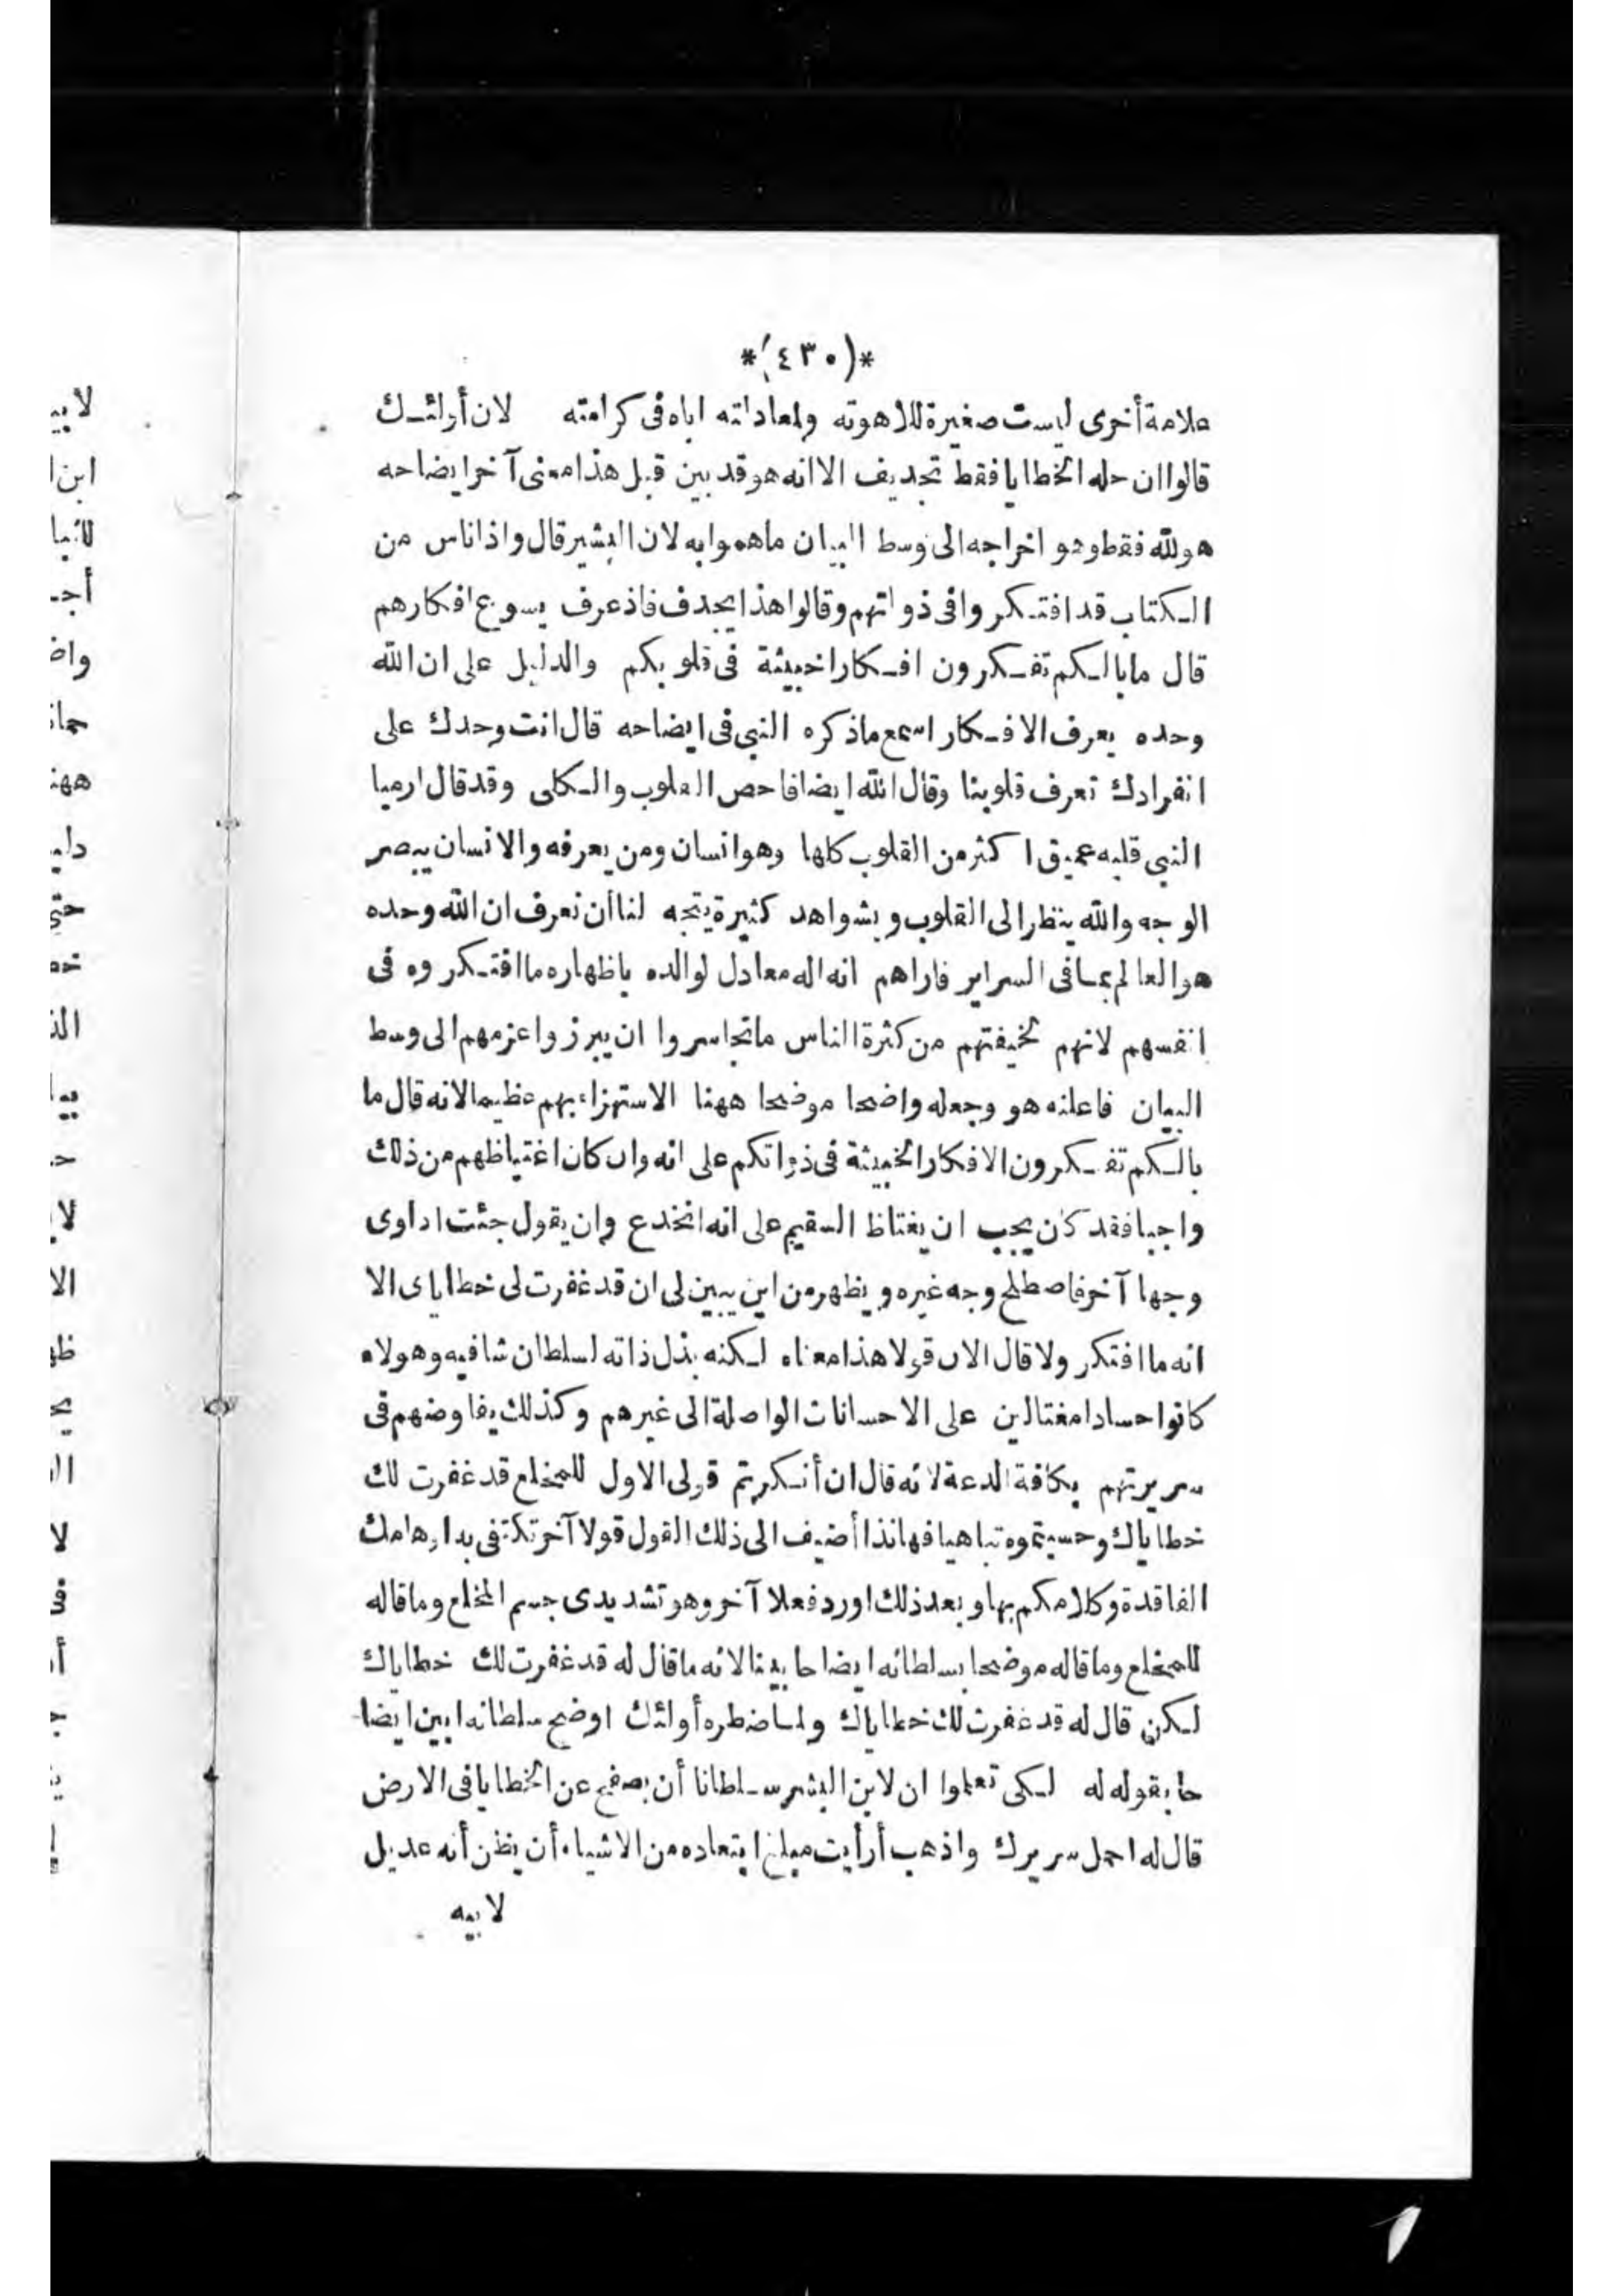 *(٤٣٠)*
علامة أخرى ليست صغيرة للاهوته ولمعادلته اباه فى كرامته لان أولئك
قالوا ان حله الخطايا فقط تجديف الا انه هو قد بين قبل هذا معنى آخر ايضاحه
هو لله فقط وهو اخراجه الى وسط البيان ماهموا به لان البشير قال واذا ناس من
الكتاب قد افتكروا فى ذواتهم وقالوا هذا يجدف فاذ عرف يسوع افكارهم
قال مابالكم تفكرون افكارا خبيثة فى قلوبكم والدليل على ان الله
وحده يعرف الافكار اسمع ماذكره النبى فى ايضاحه قال انت وحدك على
انفرادك تعرف قلوبنا وقال الله ايضا فاحص القلوب والكلى وقد قال ارميا
النبى قلبه عميق اكثر من القلوب كلها وهو انسان ومن يعرفه والانسان يبصر
الوجه والله ينظر الى القلوب وبشواهد كثيرة يتجه لنا أن نعرف ان الله وحده
هو العالم بما فى السراير فاراهم انه اله معادل لوالده باظهاره ما افتكروه فى
انفسهم لانهم لخيفتهم من كثرة الناس ماتجاسروا ان يبرزوا عزمهم الى وسط
البيان فاعلنه هو وجعله واضحا موضحا ههنا الاستهزاء بهم عظيما لانه قال ما
بالكم تفكرون الافكار الخبيثة فى ذواتكم على انه وان كان اغتياظهم من ذلك
واجبا فقد كان يجب ان يغتاظ السقيم على انه انخدع وان يقول جئت اداوى
وجها آخر فاصطلح وجه غيره ويظهر من اين يبين لى ان قد غفرت لى خطاياى الا
انه ما افتكر ولا قال الان قولا هذا معناه لكنه بذل ذاته لسلطان شافيه وهولاء
كانوا حسادا مغتالين على الاحسانات الواصلة الى غيرهم وكذلك يفاوضهم فى
سريرتهم بكافة الدعة لانه قال ان أنكرتم قولى الاول للمخلع قد غفرت لك
خطاياك وحسبتموه تباهيا فهانذا أضيف الى ذلك القول قولا آخر تكتفى بدا
الفاقدة وكلامكم بها وبعد ذلك اورد فعلا آخر وهو تشديدى جسم المخلع وماقاله
للمخلع وماقاله موضحا بسلطانه ايضاحا بينا لانه ماقال له قد غفرت لك خطاياك
لكن قال له قد غفرت لك خطاياك ولما ضطره أولئك اوضح سلطانه ابين ايضا
حا بقوله له لكى تعلموا ان لابن البشر سلطانا أن يصفح عن الخطايا فى الارض
قال له احمل سريرك واذهب أرأيت مبلغ ابتعاده من الاشياء أن يظن أنه عديل
لابيه